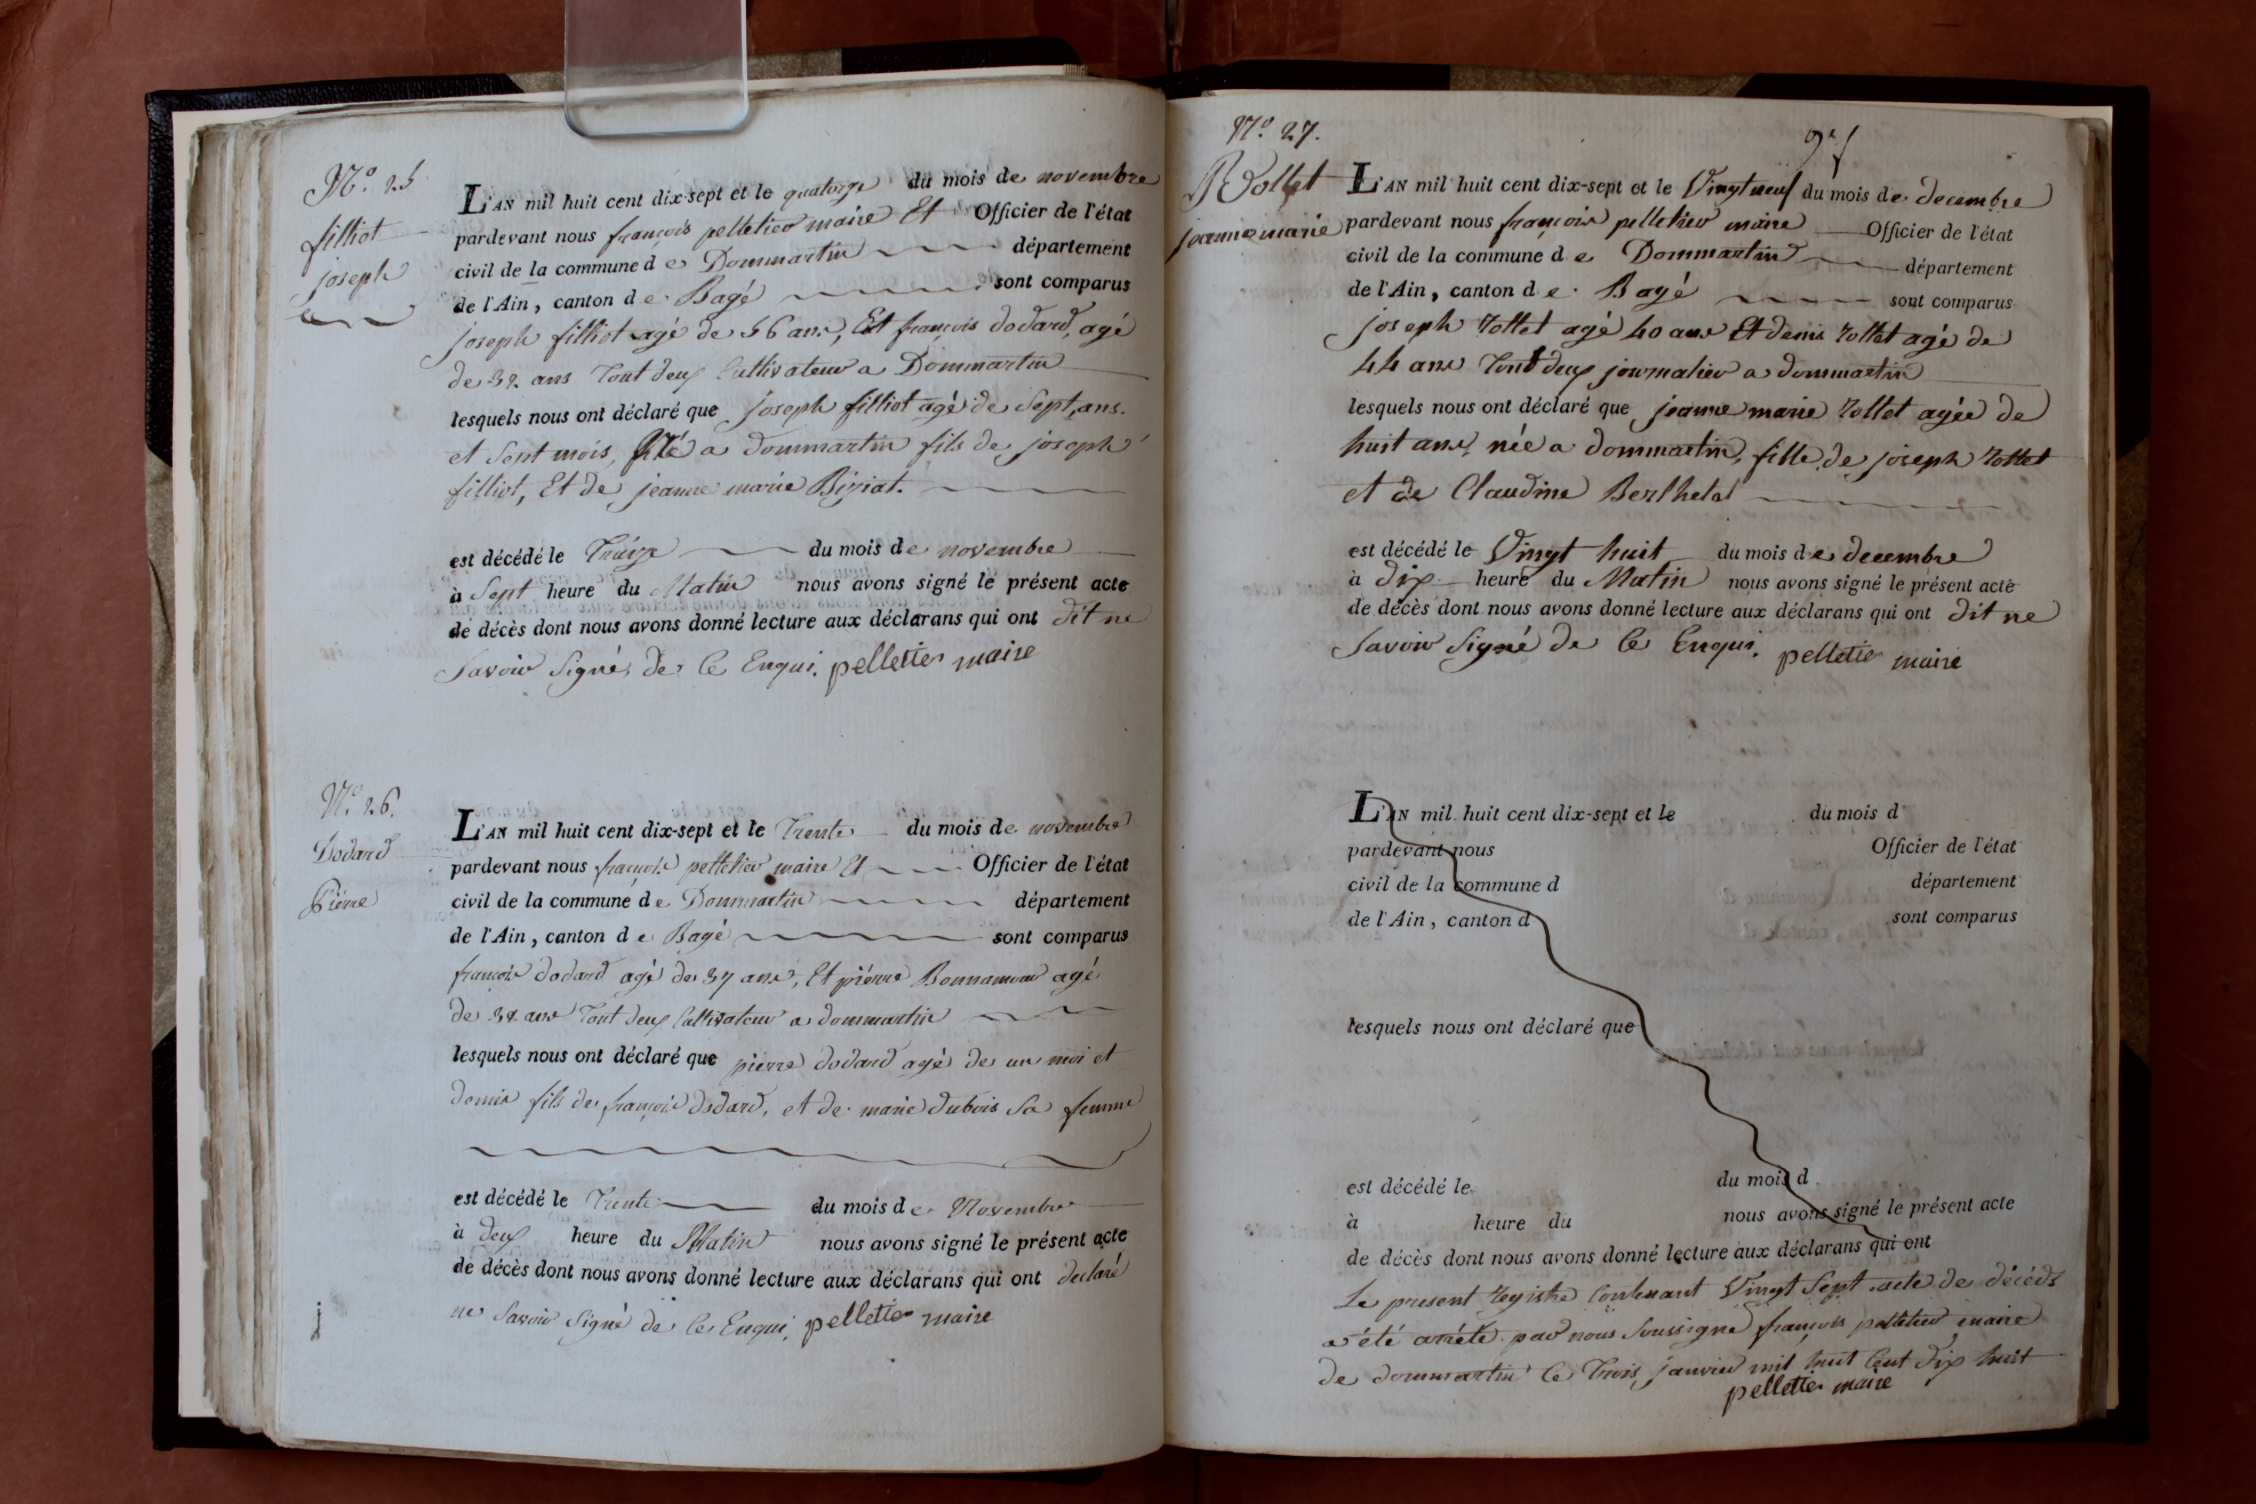 N.° 25
filliot
joseph
L'AN mil huit cent dix-sept et le quatorze du mois de novembre
pardevant nous françois pelletier maire Et Officier de l'état
civil de la commune de Dommartin département
de l'Ain, canton de Bagé sont comparus
joseph filliot agé de 46 ans, Et françois dodard, agé
de 32 ans Tout deux Cultivateur a Dommartin
lesquels nous ont déclaré que joseph filliot agé de Sept, ans.
et Sept mois, a dommartin fils de joseph
filliot, Et de jeanne marie Biziat.
est décédé le Treize du mois de novembre
à Sept heure du Matin nous avons signé le présent acte
de décès dont nous avons donné lecture aux déclarans qui ont dit ne
Savoir Signé de Ce Enqui. pelletier maire
N.° 26.
Dodard
Pierre
L'AN mil huit cent dix-sept et le Trente du mois de novembre
pardevant nous françois pelletier maire Et Officier de l'état
civil de la commune de Dommartin département
de l'Ain, canton de Bagé sont comparus
françois dodard agé de 37 ans, Et pierre Bonnamour agé
de 32 ans Tout deux Cultivateur a dommartin
lesquels nous ont déclaré que pierre dodard agé de un moi et
demis fils de françois dodard, et de marie dubois Sa femme
est décédé le Trente du mois de Novembre
à deux heure du Matin nous avons signé le présent acte
de décès dont nous avons donné lecture aux déclarans qui ont declaré
ne Savoir Signé de Ce Enqui, pelletier maire
N.° 27.
Rollet
jeanne marie
L'AN mil huit cent dix-sept et le Vingt neuf du mois de decembre
pardevant nous françois pelletier maire Officier de l'état
civil de la commune de Dommartin département
de l'Ain, canton de Bagé sont comparus
joseph rollet agé 40 ans Et denis rollet agé de
44 ans Tout deux journalier a dommartin
lesquels nous ont déclaré que jeanne marie rollet agée de
huit ans, née a dommartin, fille de joseph rollet
et de Claudine Berthelet
est décédé le Vingt huit du mois de decembre
à dix heure du Matin nous avons signé le présent acte
de décès dont nous avons donné lecture aux déclarans qui ont dit ne
Savoir Signé de Ce Enqui. pelletier maire
L'AN mil huit cent dix-sept et le du mois d
pardevant nous Officier de l'état
civil de la commune d département
de l'Ain, canton d sont comparus
lesquels nous ont déclaré que
est décédé le du mois d
à heure du nous avons signé le présent acte
de décès dont nous avons donné lecture aux déclarans qui ont
Le present registre Contenant Vingt Sept acte de décéds
a été arrété par nous Soussigné françois pelletier maire
de dommartin le Trois janvier mil huit Cent dix huit
pelletier maire